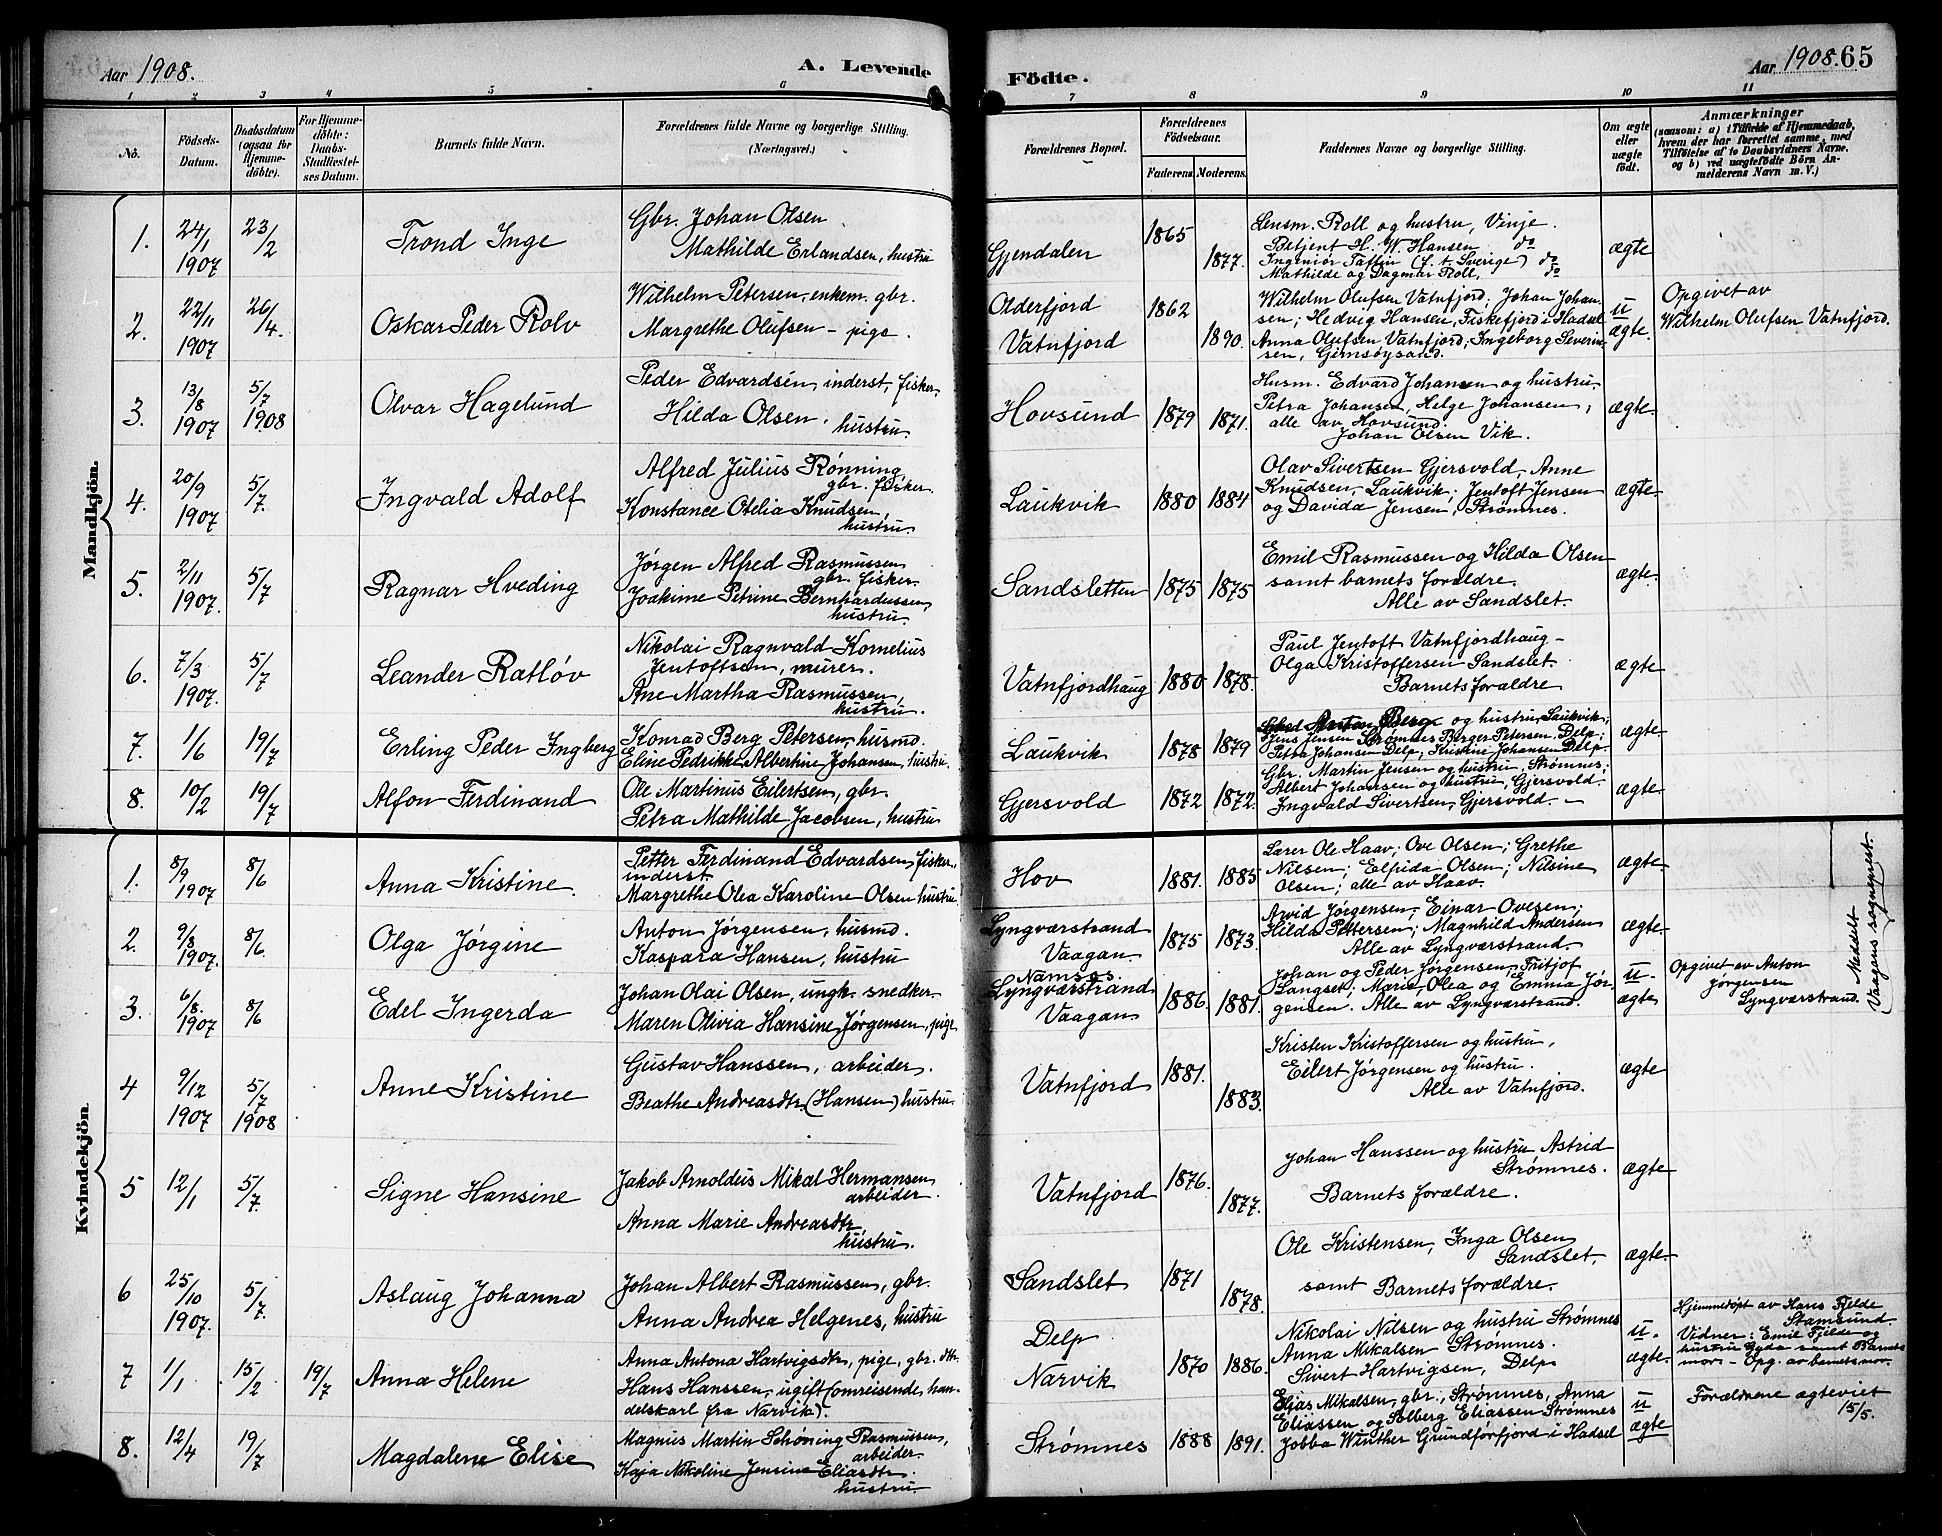 Aar 1908.
A. Levende
1 2 3 4 5 6
No.
Födsels-Datum.
Daabsdatum (ogsaa for Hjemmedöbte).
For Hjemmedöbte: Daabs-Stadfæstelses Datum.
Barnets fulde Navn.
Forældrenes fulde Navne og borgerlige Stilling. (Næringsvei.)
Mandkjön.
1. 24/1 1907 23/2 Trond Inge
Gbr. Johan Olsen
Mathilde Erlandsen, hustru
2. 22/11 1907 26/4. Oskar Peder Rolv
Wilhelm Petersen, enkem. gbr.
Margrethe Olufsen - pige.
3. 13/8 1907 5/7 1908 Olvar Hagelund
Peder Edvardsen, inderst, fisker.
Hilda Olsen, hustru.
4. 20/9 1907 5/7. Ingvald Adolf
Alfred Julius Rønning
gbr. fisker.
Konstance Otelia Knudsen,
hustru
5. 2/11 1907. 5/7 Ragnar Hveding
Jørgen Alfred Rasmussen
gbr. fisker.
Joakime Petrine Bernhardussen
hustru.
6. 7/3 1907. 5/7 Leander Ratløv
Nikolai Ragnvald Kornelius
Jentoftsen, murer.
Ane Martha Rasmussen,
hustru.
7. 1/6 19/7 Erling Peder Ingberg
Konrad Berg Petersen, husmd.
Eline Pedrikke Albertine Johansen, hustru.
8. 10/2 19/7 Alfon Ferdinand
Ole Martinus Eilertsen, gbr.
Petra Mathilde Jacobsen, hustru
Kvindekjön.
1. 8/9 1907 8/6 Anna Kristine.
Petter Ferdinand Edvardsen, fisker,
inderst.
Margrethe Olea Karoline Olsen hustru
2. 9/8 1907. 8/6. Olga Jørgine
Anton Jørgensen, husmd.
Kaspara Hansen, hustru
3. 6/8. 1907 8/6 Edel Ingerda
Johan Olai Olsen, ungk. snedker.
Maren Olivia Hansine Jørgensen, pige
4 9/12 1907 5/7 1908 Anne Kristine
Gustav Hanssen, arbeider.
Beathe Andreasdtr. (Hansen) hustru.
5 12/1 5/7. Signe Hansine
Jakob Arnoldus Mikal Hermansen
arbeider.
Anna Marie Andreasdtr,
hustru.
6 25/10 1907. 5/7. Aslaug Johanna
Johan Albert Rasmussen, gbr.
Anna Andrea Helgenes, hustru
7 1/1 15/2 19/7 Anna Helene
Anna Antona Hartvigsdtr, pige, gbr. dtr.
Hans Hanssen, ugift (omreisende han-
delskarl fra Narvik).
8. 12/4 19/7 Magdalene Elise
Magnus Martin Schøning Rasmussen,
arbeider.
Kaja Nikoline Jensine Eliasdtr.
hustru.
Födte.
Aar 1908. 65
7 8 9 10 11
Forældrenes Bopæl.
Forældrenes Födselsaar. Faderens. Moderens.
Faddernes Navne og borgerlige Stilling.
Om ægte eller uægte födt.
Anmærkninger
(saasom: a) i Tilfælde af Hjemmedaab, hvem der har forrettet samme, med Tilföielse af to Daabsvidners Navne. og b) ved uægtefödte Börn Anmelderens Navn m. V.)
Gjendalen 1865 1877.
Lensm. Roll og hustru, Vinje.
Betjent H. W. Hansen do
Ingeniør Taflin (f. t. Sverige) do
Mathilde og Dagmar Roll, do
ægte
Olderfjord Vatnfjord 1862 1890.
Wilhelm Olufsen Vatnfjord; Johan Johan-
sen; Hedvig Hansen, Fiskefjord i Hadsel
Anna Olufsen Vatnfjord; Ingeborg Severin-
sen, Gimsøysand.
u ægte.
Opgivet av
Wilhelm Olufsen Vatnfjord.
Hovsund 1879 1871.
Husm. Edvard Johansen og hustru,
Petra Johansen, Helge Johansen,
alle av Hovsund.
Johan Olsen Vik.
ægte.
Laukvik 1880 1884
Olav Sivertsen Gjersvold, Anne
Knudsen, Laukvik; Jentoft Jensen
og Davida Jensen, Strømnes.
ægte.
Sandsletten 1875 1875
Emil Rasmussen og Hilda Olsen
samt barnets forældre.
Alle av Sandslet.
ægte.
Vatnfjordhaug 1880 1878.
Paul Jentoft Vatnfjordhaug -
Olga Kristoffersen Sandslet.
Barnets forældre
ægte
Laukvik 1878 1879
Anton Berg og hustru, Laukvik;
Jens Jensen Strømnes Berger Petersen Delp;
Petra Johansen Delp, Kristine Johansen Delp.
ægte.
Gjersvold 1872 1872.
Gbr. Martin Jensen og hustru, Strømnes;
Albert Johansen og hustru, Gjersvold.
Ingvald Sivertsen, Gjersvold. -
ægte.
Hov 1881. 1885
Lærer Ole Haav; Ove Olsen; Grethe
Nilsen; Elfrida Olsen; Nilsine
Olsen; alle av Haav.
ægte.
Lyngværstrand Vaagan 1875 1873.
Arvid Jørgensen; Einar Ovesen;
Hilda Pettersen; Magnhild Andersen
Alle av Lyngværstrand.
ægte.
Namsos. Lyngværstrand Vaagan 1886. 1881.
Johan og Peder Jørgensen, Fritjof
Langset; Marie, Olea og Emma Jør-
gensen. Alle av Lyngværstrand.
u- ægte
Opgivet av Anton
Jørgensen
Lyngværstrand.
Meddelt
Vaagans sogneprest.
Vatnfjord 1881. 1883.
Kristen Kristoffersen og hustru,
Eilert Jørgensen og hustru.
Alle av Vatnfjord.
ægte
Vatnfjord 1876. 1877.
Johan Hanssen og hustru Astrid
Strømnes.
Barnets forældre.
ægte
Sandslet 1871 1878.
Ole Kristensen, Inga Olsen
Sandslet,
samt Barnets forældre.
ægte.
Delp Narvik 1870 1886.
Nikolai Nilsen og hustru Strømnes
Anna Mikalsen Strømnes.
Sivert Hartvigsen, Delp
u. ægte.
Hjemmedøpt av Hans Fjelde
Stamsund.
Vidner: Emil Fjelde og
hustru Gyda samt Barnets
mor. - Opg. av barnets mor.
Strømnes 1888 1891.
Eljas Mikalsen, gbr., Strømnes, Anna
Eliassen og Solberg Eliassen Strømnes
Jobba Winther Grundforfjord i Hadsel
u ægte
Forældrene ægteviet
15/5.